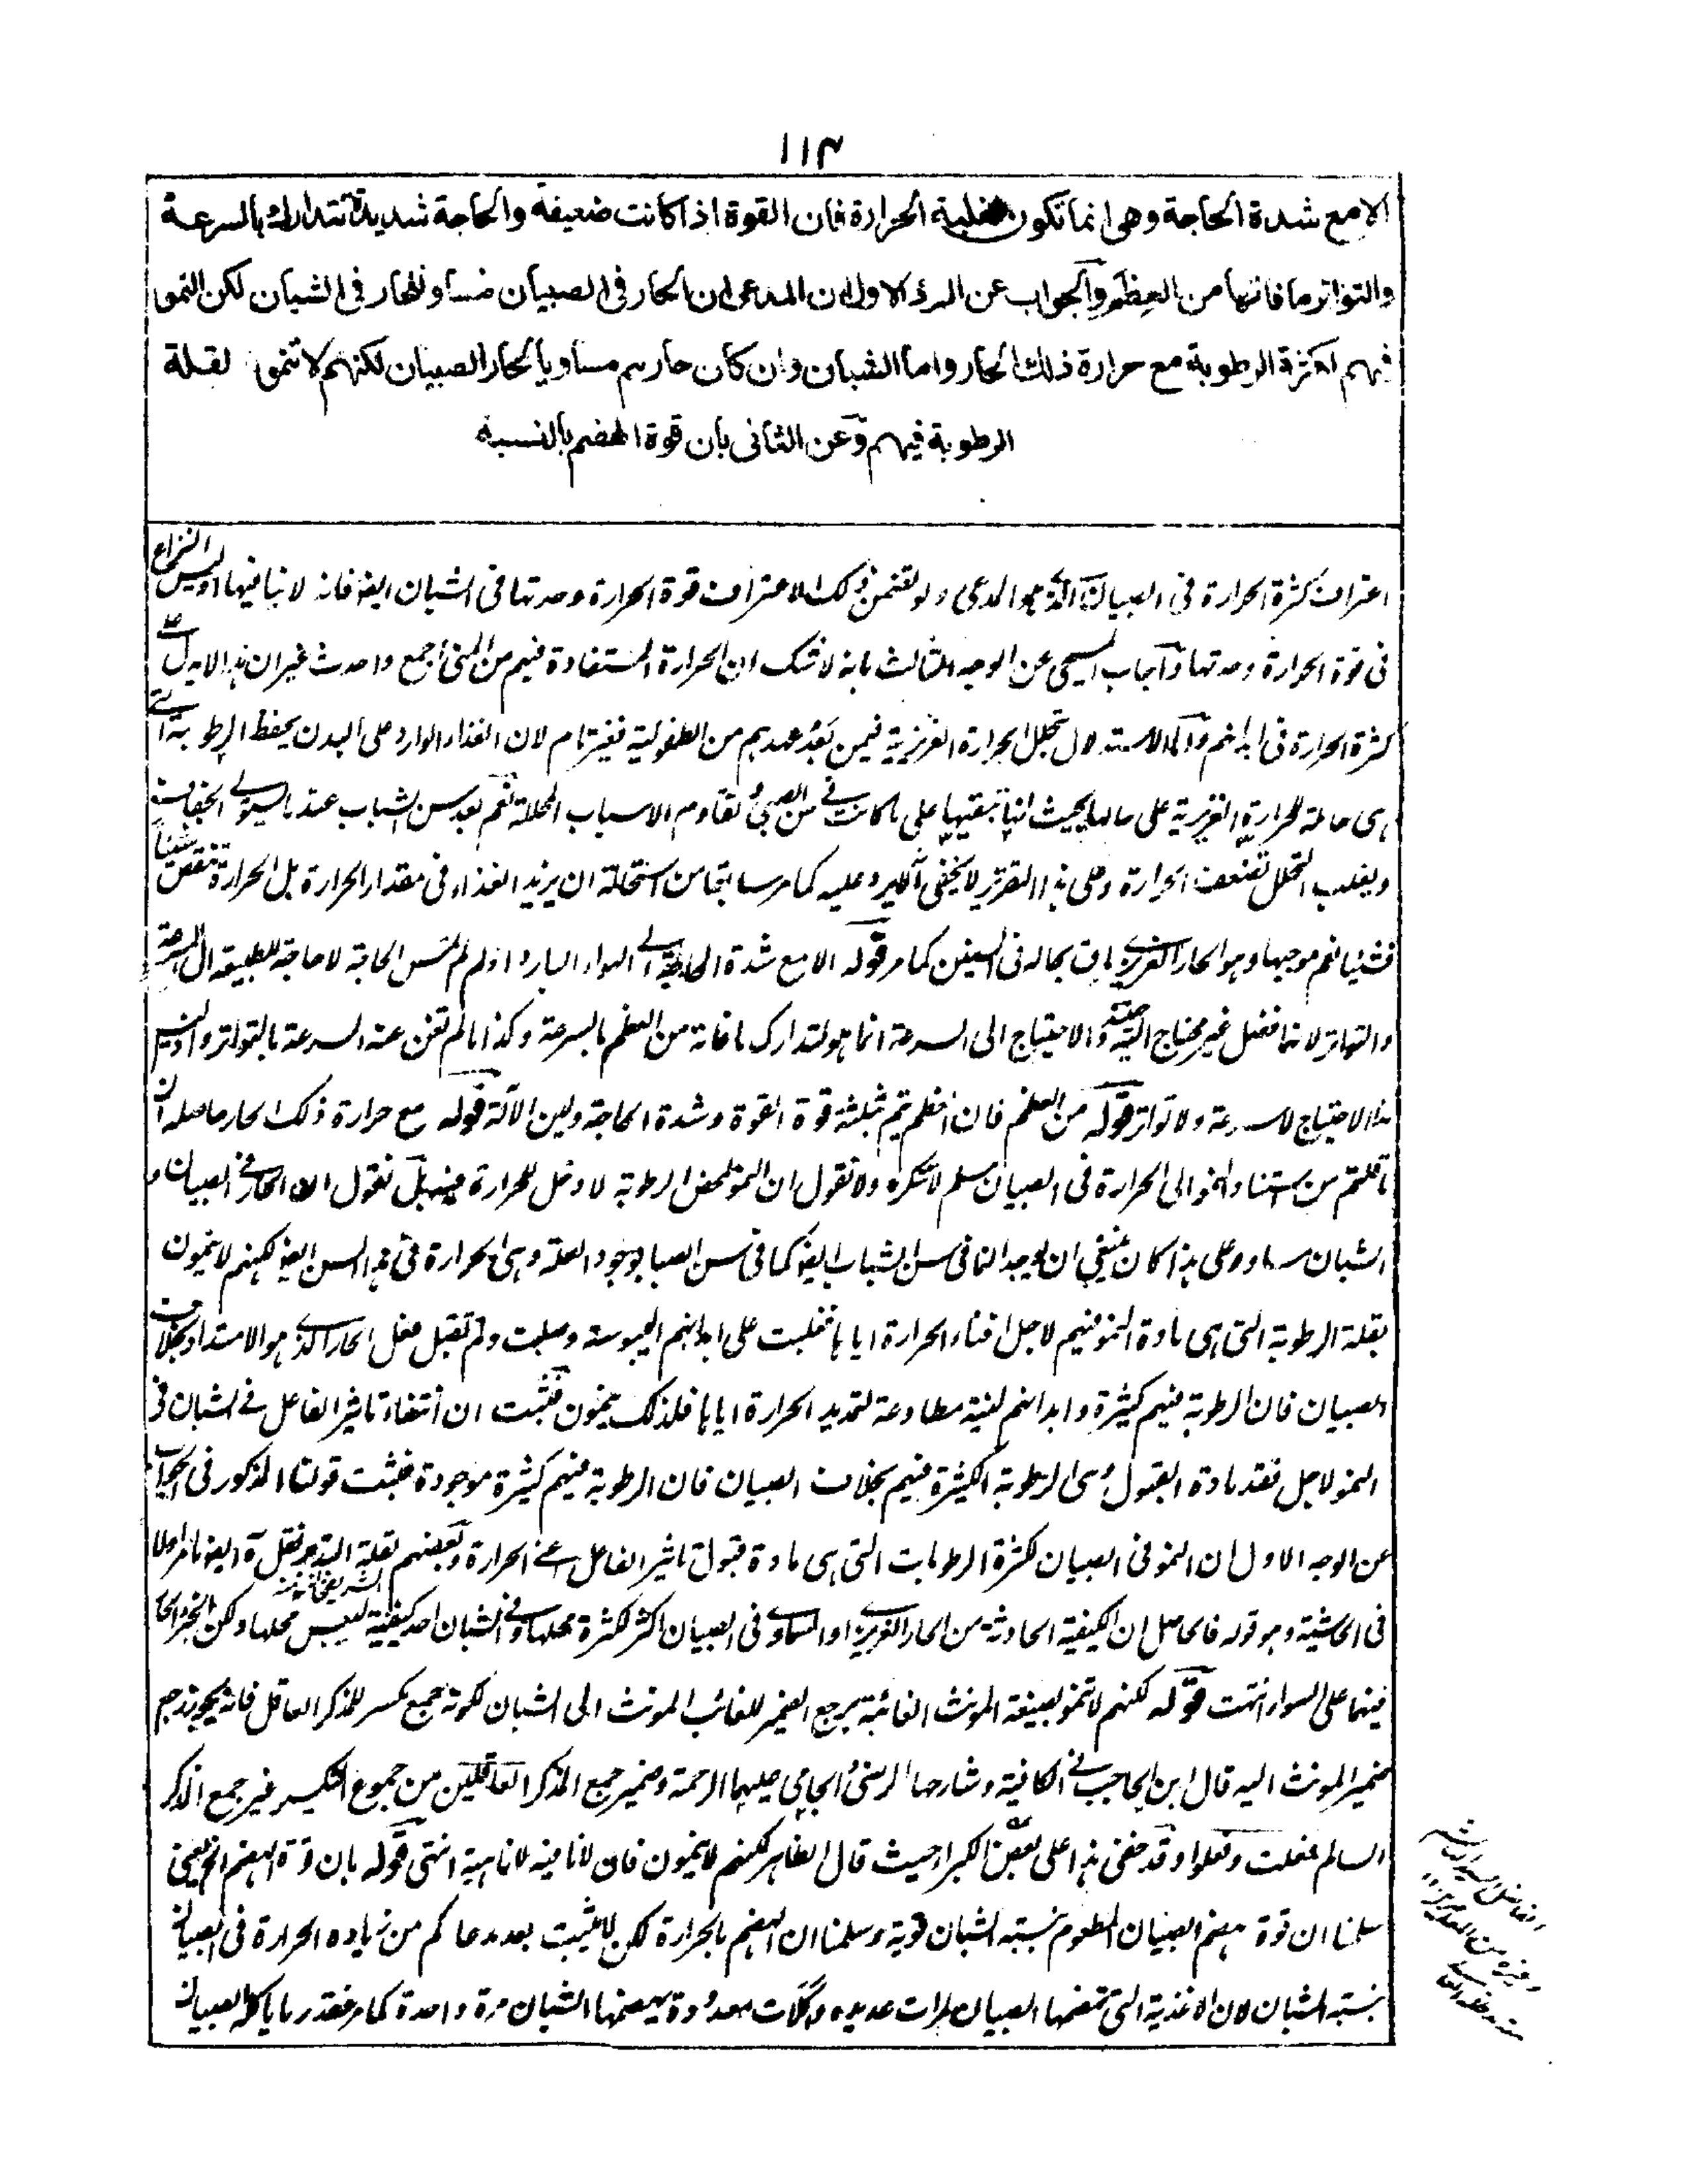 ١١٣
الامع شدة الحاجة وهى انما تكون لغلبة الحرارة فان القوة اذا كانت ضعيفة والحاجة شديدة تتدارك بالسرعة
والتواتر ما فاتها من العظم والجواب عن الاول ان المدعى ان الحار فى الصبيان مساو للحار فى الشبان لكن النمو
فيهم لكثرة الرطوبة مع حرارة ذلك الحار واما الشبان وان كان حارهم مساويا لحار الصبيان لكنهم لا تنمو لقلة
الرطوبة فيهم وعن الثانى بان قوة الهضم بالنسبة
اعتراف بكثرة الحرارة فى الصبيان الذى هو المدعى ولو تضمن ذلك الاعتراف قوة الحرارة وحدتها فى الشبان ايضا فانه لا ينافيها اذ ليس النزاع
فى قوة الحرارة وحدتها واجاب المسيحى عن الوجه الثالث بانه لا شك ان الحرارة المستفادة فيهم من المنى اجمع واحدث غير ان هذا لا يدل على
كثرة الحرارة فى ابدانهم واما الاستدلال بتحلل الحرارة الغريزية فيمن بعد عهدهم من الطفولية فغير تام لان الغذاء الوارد على البدن يحفظ الرطوبة التى
هى حاملة للحرارة الغريزية على حالها بحيث انها تبقيها على ما كانت فى سن الصبى وتقاوم الاسباب المحللة نعم بعد سن الشباب عند ما يستولى الجفاف
ويغلب التحلل تضعف الحرارة وعلى هذا التقرير لا يخفى ما يرد عليه كما مر سابقا من استحالة ان يزيد الغذاء فى مقدار الحرارة بل الحرارة تنقص شيئا
فشيئا نعم موجبها وهو الحار الغريزى باق بحاله فى السنين كما مر قوله الامع شدة الحاجة الى الهواء البارد اذ لو لم تمس الحاجة لا حاجة للطبيعة الى السرعة
والتواتر لانها فضل غير محتاج اليه والاحتياج الى السرعة انما هو لتدارك ما فاته من العظم بالسرعة وكذا ما لم تغن عنه السرعة بالتواتر واذ ليس
هذا الاحتياج لا سرعة ولا تواتر قوله من العظم فان العظم يتم بثلثة قوة القوة وشدة الحاجة ولين الآلة قوله مع حرارة ذلك الحار حاصله ان
ما قلتم من استناد النمو الى الحرارة فى الصبيان مسلم لا ننكره ولا نقول ان النمو لمحض الرطوبة لا دخل للحرارة فيه بل نقول ان الحار فى الصبيان و
الشبان مساو وعلى هذا كان ينبغى ان يوجد النما فى سن الشباب ايضا كما فى سن الصبا لوجود العلة وهى الحرارة فى هذا السن ايضا لكنهم لا ينمون
لقلة الرطوبة التى هى مادة النمو فيهم لاجل افناء الحرارة اياها فغلبت على ابدانهم اليبوسة وصلبت ولم تقبل فعل الحار الذى هو الامتداد بخلاف
الصبيان فان الرطوبة فيهم كثيرة وابدانهم لينة مطاوعة لتمديد الحرارة اياها فلذلك ينمون فثبت ان انتفاء تاثير الفاعل فى الشبان فى
النمو لاجل فقد مادة القبول وهى الرطوبة الكثيرة فيهم بخلاف الصبيان فان الرطوبة فيهم كثيرة موجودة فثبت قولنا المذكور فى الجواب
عن الوجه الاول ان النمو فى الصبيان لكثرة الرطوبات التى هى مادة قبول تاثير الفاعل اعنى الحرارة وبعضهم لقلة التدبر نقل ايضا
فى الحاشية وهو قوله فالحاصل ان الكيفية الحادثة من الحار الغريزى او السماوى فى الصبيان اكثر لكثرة محلها وفى الشبان احد كيفية ليبس محلها ولكن الجزء الحار
فيهما على السواء انتهت قوله لكنهم لا تنمو بصيغة المونث الغائبة يرجع الضمير للغائب المونث الى الشبان لكونه جمع مكسر للمذكر العاقل فانه يجوز رجع
ضمير المونث اليه قال ابن الحاجب فى الكافية وشارحها الرضى والجامى عليهما الرحمة وضمير جمع المذكر العاقلين من جموع التكسير غير جمع المذكر
السالم فعلت وفعلوا وقد خفى هذا على بعض الكبراء حيث قال الظاهر لكنهم لا ينمون فان لا نافية لا ناهية انتهى قوله بان قوة الهضم الخ يعنى
سلمنا ان قوة هضم الصبيان للطعوم بنسبة الشبان قوية وسلمنا ان الهضم بالحرارة لكن لا يثبت بعد مدعاكم من زيادة الحرارة فى الصبيان
بنسبة الشبان لان الاغذية التى تهضمها الصبيان لمرات عديدة واكلات معدودة يهضمها الشبان مرة واحدة كما مر فقدر ما ياكله الصبيان